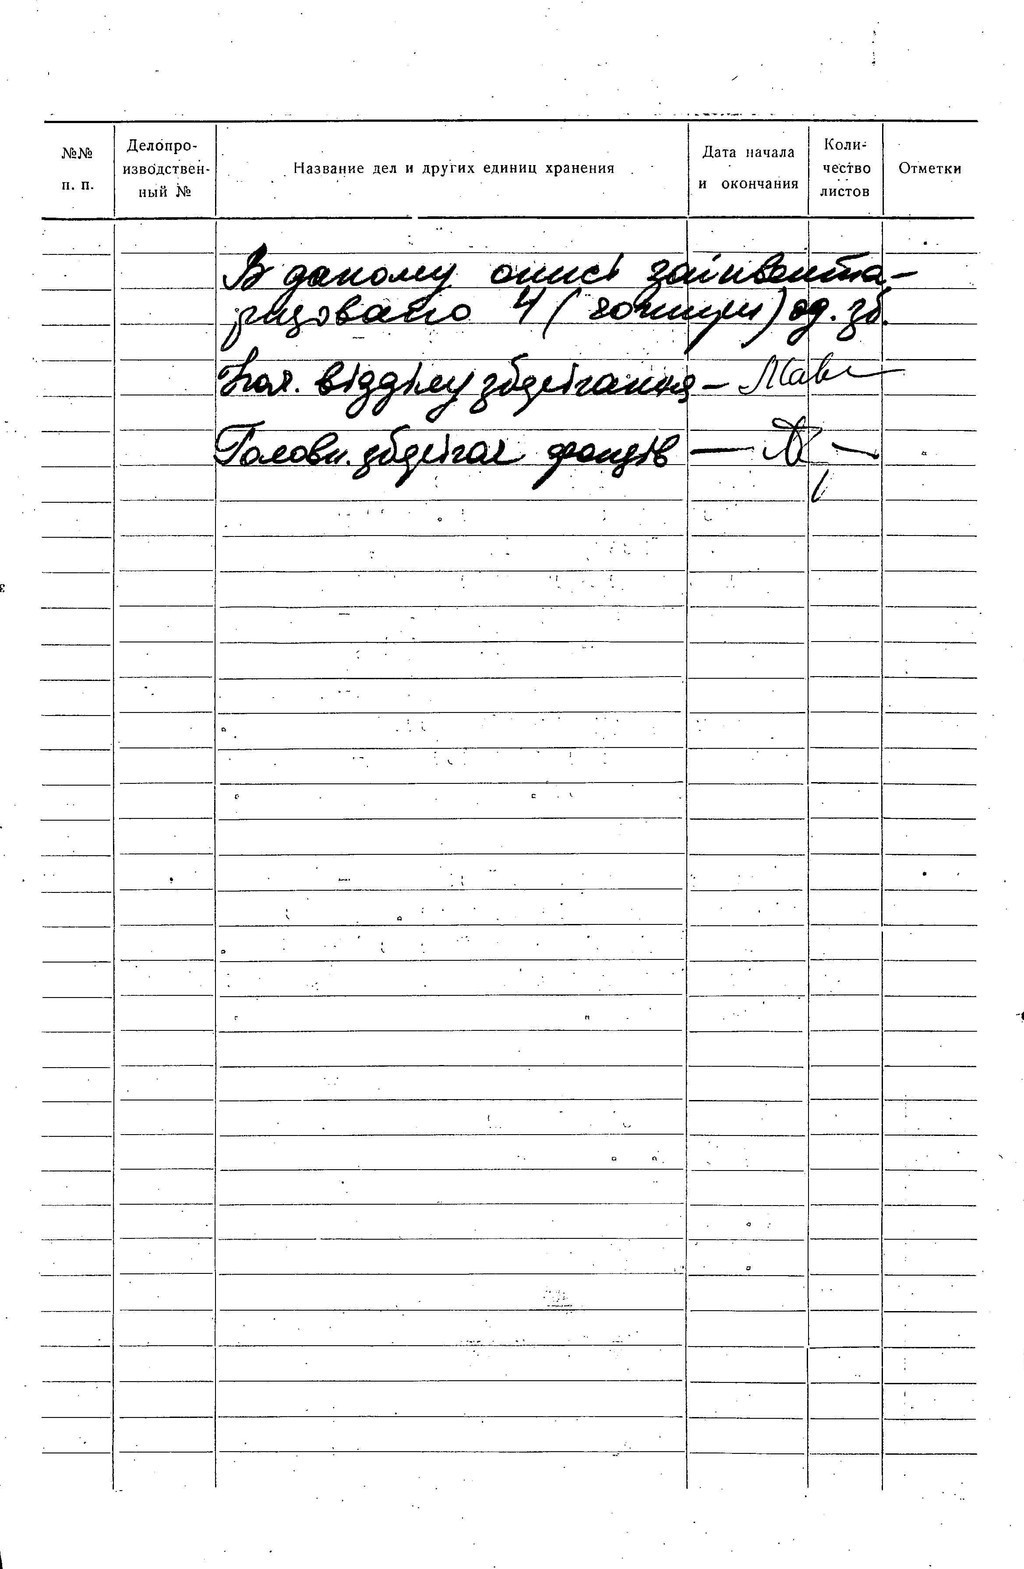 №№ п. п.
Делопроизводственный №
Название дел и других единиц хранения
Дата начала и окончания
Количество листов
Отметки
В даному описі заінвента-
ризовано 4 (чотири) од. зб.
Нач. відділу зберігання –
Головн. зберігач фондів —